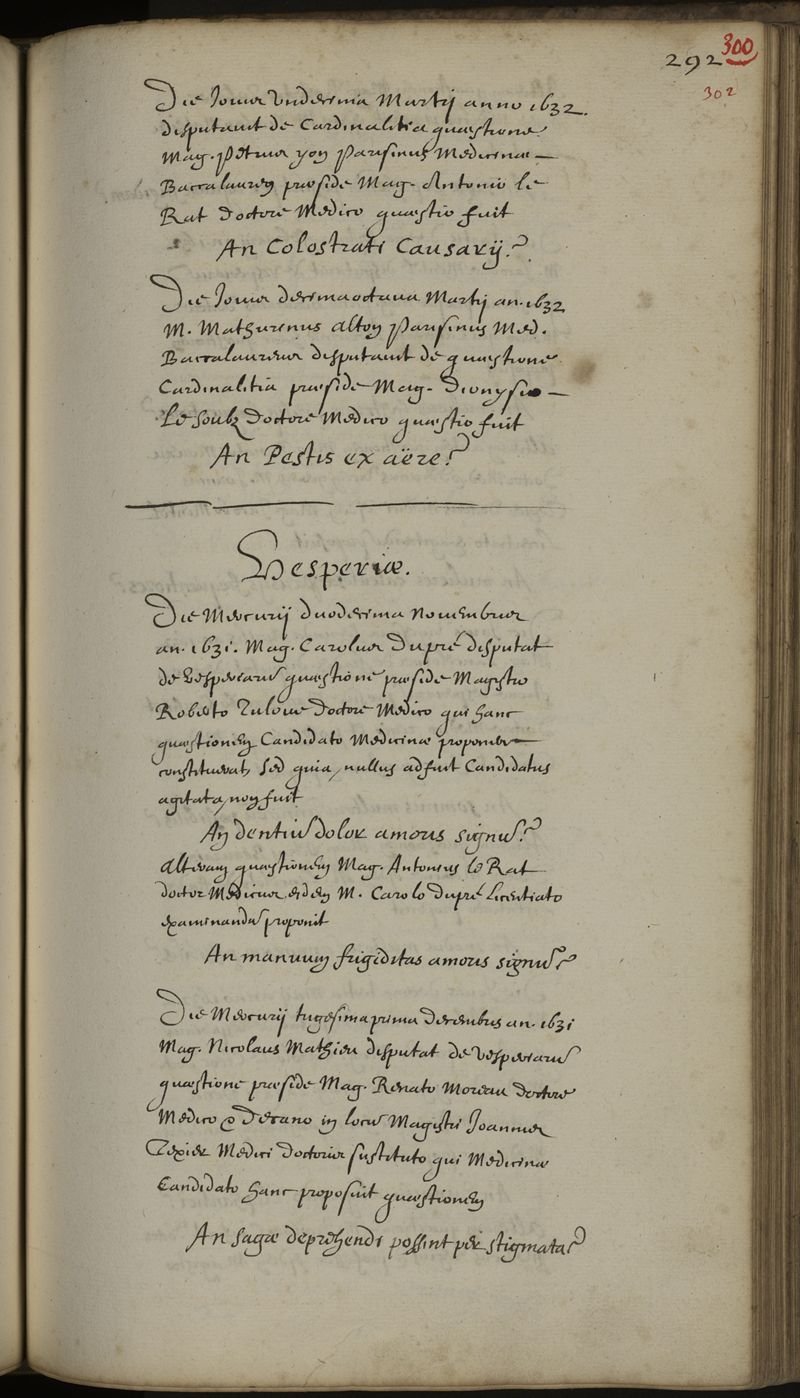 292 300
302
Die Jovis Undecima Martij anno 1632.
disputavit de Cardinalitia quæstione
Mag. Petrus yon Parisinus Medicinæ —
Baccalaureus præside Mag. Antonio le
Rat doctore Medico quæstio fuit
An Colostrati Causarij?
Die Jovis decimaoctava Martij an. 1632
M. Mathurinus Alton Parisinus Med.
Baccalaureus disputavit de quæstione
Cardinalitia præside Mag. Dionysio —
Le Soubz Doctore Medico quæstio fuit
An Pestis ex aëre?
Vesperiæ.
Die Mercurij duodecima Novembris
an. 1631. Mag. Carolus Dupré disputat
de Vesperiarū quæstione præside Magistro
Roberto Tuloue Doctore Medico qui hanc
quæstionem Candidato Medicinæ proponere —
constituerat, sed quia, nullus adfuit Candidatus
agitata, non fuit
An dentiū dolor amoris signū?
Alteram quæstionem Mag. Antonius le Rat
doctor Medicus eidem M. Carolo Dupré Licentiato
examinandā proponit
An manuum frigiditas amoris signū?
Die Mercurij trigesima prima decembris an. 1631
Mag. Nicolaus Mathieu disputat de Vesperiarū
quæstione præside Mag. Renato Moreau doctore
Medico & Decano in locū Magistri Joannis
Texier Medici Doctoris sustituto qui Medicinæ
Candidato hanc proposuit quæstionem
An sagæ deprehendi possint per stigmata?